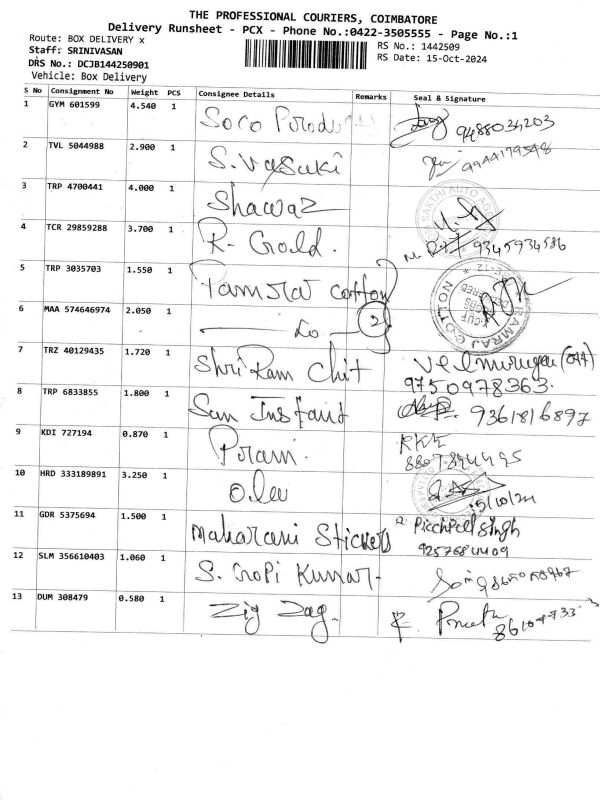 THE PROFESSIONAL COURIERS, COIMBATORE
Delivery Runsheet - PCX - Phone No.:0422-3505555 - Page No.:1
Route: BOX DELIVERY x
RS No.: 1442509
Staff: SRINIVASAN
RS Date: 15-Oct-2024
DRS No.: DCJB144250901
Vehicle: Box Delivery
S No Consignment No Weight PCS Consignee Details Remarks Seal & Signature
1 GYM 601599 4.540 1 Soco 9488034203
2 TVL 5044988 2.900 1 S. Vasuki
3 TRP 4700441 4.000 1 Shawaz
4 TCR 29859288 3.700 1 R- Gold. 9345934586
5 TRP 3035703 1.550 1 cotton
6 MAA 574646974 2.050 1 Do 2
7 TRZ 40129435 1.720 1 Shri Ram Chit Velmurugan
9750978363.
8 TRP 6833855 1.800 1 San Instant 9361816897
9 KDI 727194 0.870 1 RKK
10 HRD 333189891 3.250 1 15/10/24
11 GDR 5375694 1.500 1 Maharani Stickers Singh
12 SLM 356610403 1.060 1 S. Gopi Kumar-
13 DUM 308479 0.580 1 Zig Zag.